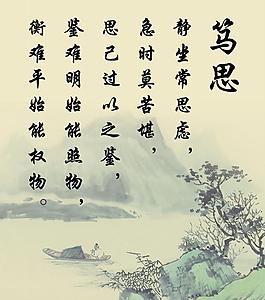 笃思
静坐常思虑，
急时莫苦堪，
思己过以之鉴，
鉴难明始能照物，
衡难平始能权物。